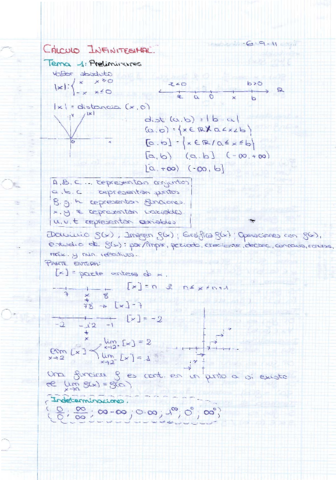 CÁLCULO INFINITESIMAL. 6-9-11
Tema -1: Preliminares
Valor absoluto
|x| = { x x≥0
-x x≤0
a<0 b>0
a 0 x b R
|x| = distancia (x, 0)
|x|
dist (a, b) = |b - a|
(a, b) = {x ∈ R / a < x < b}
[a, b] = {x ∈ R / a ≤ x ≤ b}
[a, b) (a, b] (-∞, +∞)
[a, +∞) (-∞, b)
A, B, C ... representan conjuntos
a, b, c ... representan puntos
f, g, h representan funciones
x, y, z representan variables
u, v, t representan variables
Dominio f(x), Imagen f(x), Gráfica f(x), Operaciones con f(x),
estudio de f(x): par/impar, periodo, creciente, decrec,
max. y min. relativos.
Parte entera:
[x] = parte entera de x.
7 x 8 [x] = n n ≤ x < n+1
7'8 → [x] = 7
-2 -1 [x] = -2
lim [x] x→2
lim [x] = 2
lim [x] = 1
Una función f es cont. en un punto a si existe
el lim f(x) = f(a)
x→a
Indeterminaciones:
0/0, ∞/∞, ∞-∞, 0·∞, 1^∞, 0^0, ∞^0